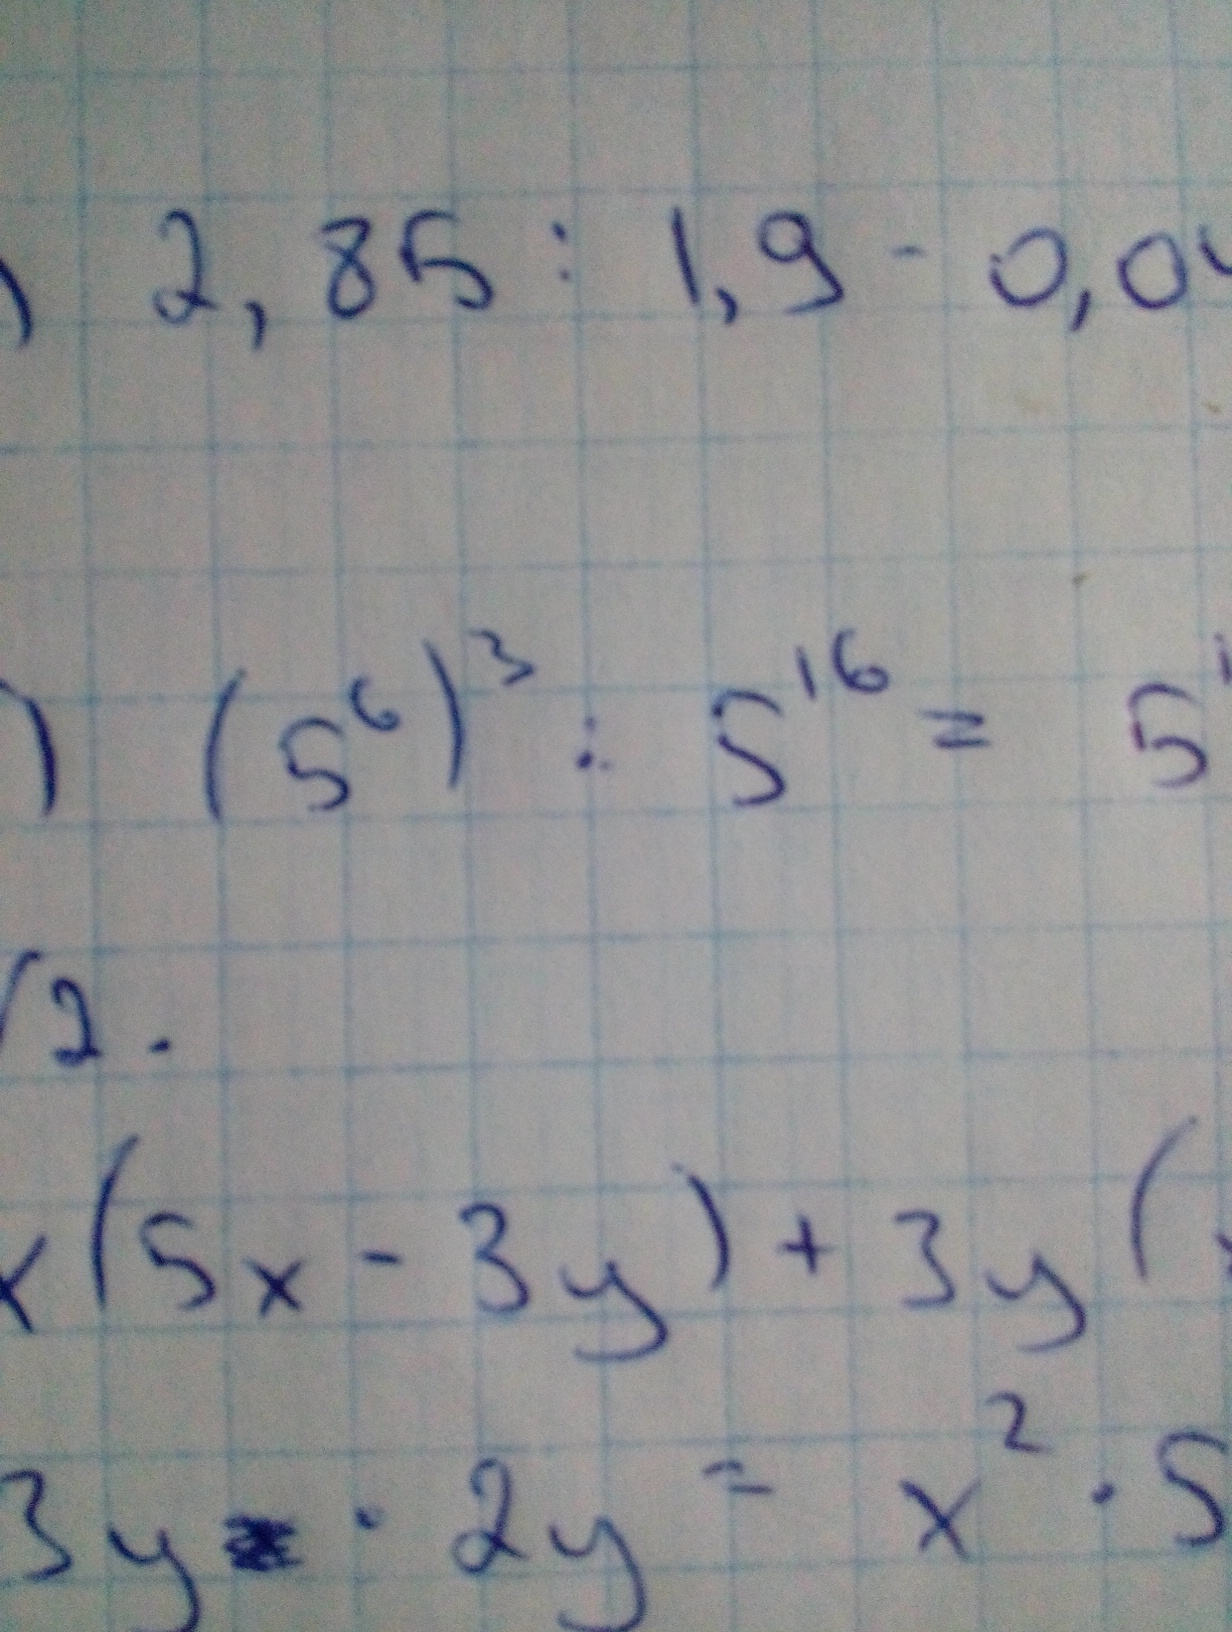 ) 2,85 : 1,9 - 0,04
) (5⁶)³ : 5¹⁶ = 5¹
√2.
x(5x - 3y) + 3y(
3y · 2y = x² · 5